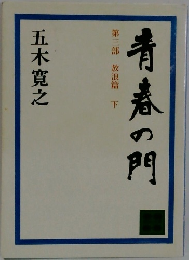 青春の門
第三部 放浪篇 下
五木寛之